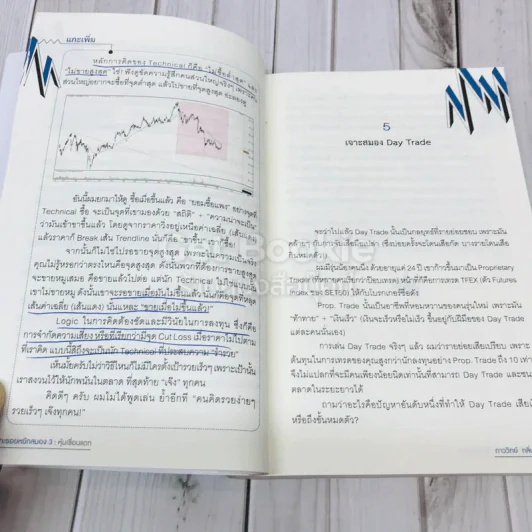 แกะเพิ่ม
หลักการคิดของ Technical ก็คือ "ไม่ซื้อต่ำสุด" และ
"ไม่ขายสูงสุด" ใช่! ฟังดูขัดความรู้สึกคนส่วนใหญ่จริงๆ เพราะคน
ส่วนใหญ่อยากจะซื้อที่จุดต่ำสุด แล้วไปขายที่จุดสูงสุด
อันนี้ผมยกมาให้ดู ซื้อเมื่อขึ้นแล้ว คือ "ยอมซื้อแพง" อย่างจุดที่
Technical ซื้อ จะเป็นจุดที่เขามองด้วย "สถิติ" + "ความน่าจะเป็น"
ว่ามันเข้าขาขึ้นแล้ว โดยดูจากราคาวิ่งอยู่เหนือค่าเฉลี่ย (เส้นแดง)
แล้วราคาก็ Break เส้น Trendline นั่นก็คือ "ขาขึ้น" เขาก็ซื้อ!
จากนั้นก็ไม่ใช่ไปรอขายจุดสูงสุด เพราะในความเป็นจริง
คุณไม่รู้หรอกว่าตรงไหนคือจุดสูงสุด ดังนั้นพวกที่ต้องการขายจุดสูงสุด
จะขายหมูเสมอ คือขายแล้วไปต่อ แต่นัก Technical ไม่ใช่แบบนั้น
เขาไม่ขายหมู ดังนั้นเขาจะรอขายเมื่อมันไม่ขึ้นแล้ว นั่นก็คือจุดที่หลุด
เส้นค่าเฉลี่ย (เส้นแดง) นั่นแหละ "ขายเมื่อไม่ขึ้นแล้ว!"
Logic ในการคิดต้องชัดและมีวินัยในการลงทุน ซึ่งก็คือ
การจำกัดความเสี่ยง หรือที่เรียกว่ามีจุด Cut Loss เมื่อราคาไม่ไปตาม
ที่เราคิด แบบนี้สิถึงจะเป็นนัก Technical ที่ประสบความ "ร่ำรวย"
เห็นมั้ยครับไม่ว่าวิธีไหนก็ไม่มีใครตั้งเป้ารวยเร็วๆ เพราะเป้านั้น
เราสงวนไว้ให้นักพนันในตลาด ที่สุดท้าย "เจ๊ง" ทุกคน
คิดดีๆ ครับ ผมไม่ได้พูดเล่น ย้ำอีกที "คนคิดรวยง่ายๆ
รวยเร็วๆ เจ๊งทุกคน!"
แกะรอยหยักสมอง 3 : หุ้นเชือนแดก
5
เจาะสมอง Day Trade
จะว่าไปแล้ว Day Trade นั้นเป็นกลยุทธ์ที่รายย่อยชอบ เพราะมัน
ผมมีรุ่นน้องคนนึง ด้วยอายุแค่ 24 ปี เขาก้าวขึ้นมาเป็น Proprietary
Trader (ที่คนไทยเรียกว่าป๊อบเทรด) หน้าที่คือการเทรด TFEX (ตัว Futures
Index ของ SET50) ให้กับโบรกเกอร์ชื่อดัง
Prop. Trade นั้นเป็นอาชีพที่หอมหวานของคนรุ่นใหม่ เพราะมัน
"ท้าทาย" + "เงินเร็ว" (เงินจะเร็วหรือไม่เร็ว ขึ้นอยู่กับฝีมือของ Day Trade
แต่ละคนนั่นเอง)
การเล่น Day Trade จริงๆ แล้ว ผมว่ารายย่อยเสียเปรียบ เพราะ
ต้นทุนในการเทรดของคุณสูงกว่านักลงทุนอย่าง Prop. Trade ถึง 10 เท่า
จึงไม่แปลกที่จะมีคนเพียงน้อยนิดเท่านั้นที่สามารถ Day Trade และชนะ
ตลาดในระยะยาวได้
ถามว่าอะไรคือปัญหาอันดับหนึ่งที่ทำให้ Day Trade เสีย
หรือถึงขั้นหมดตัว?
ภาววิทย์